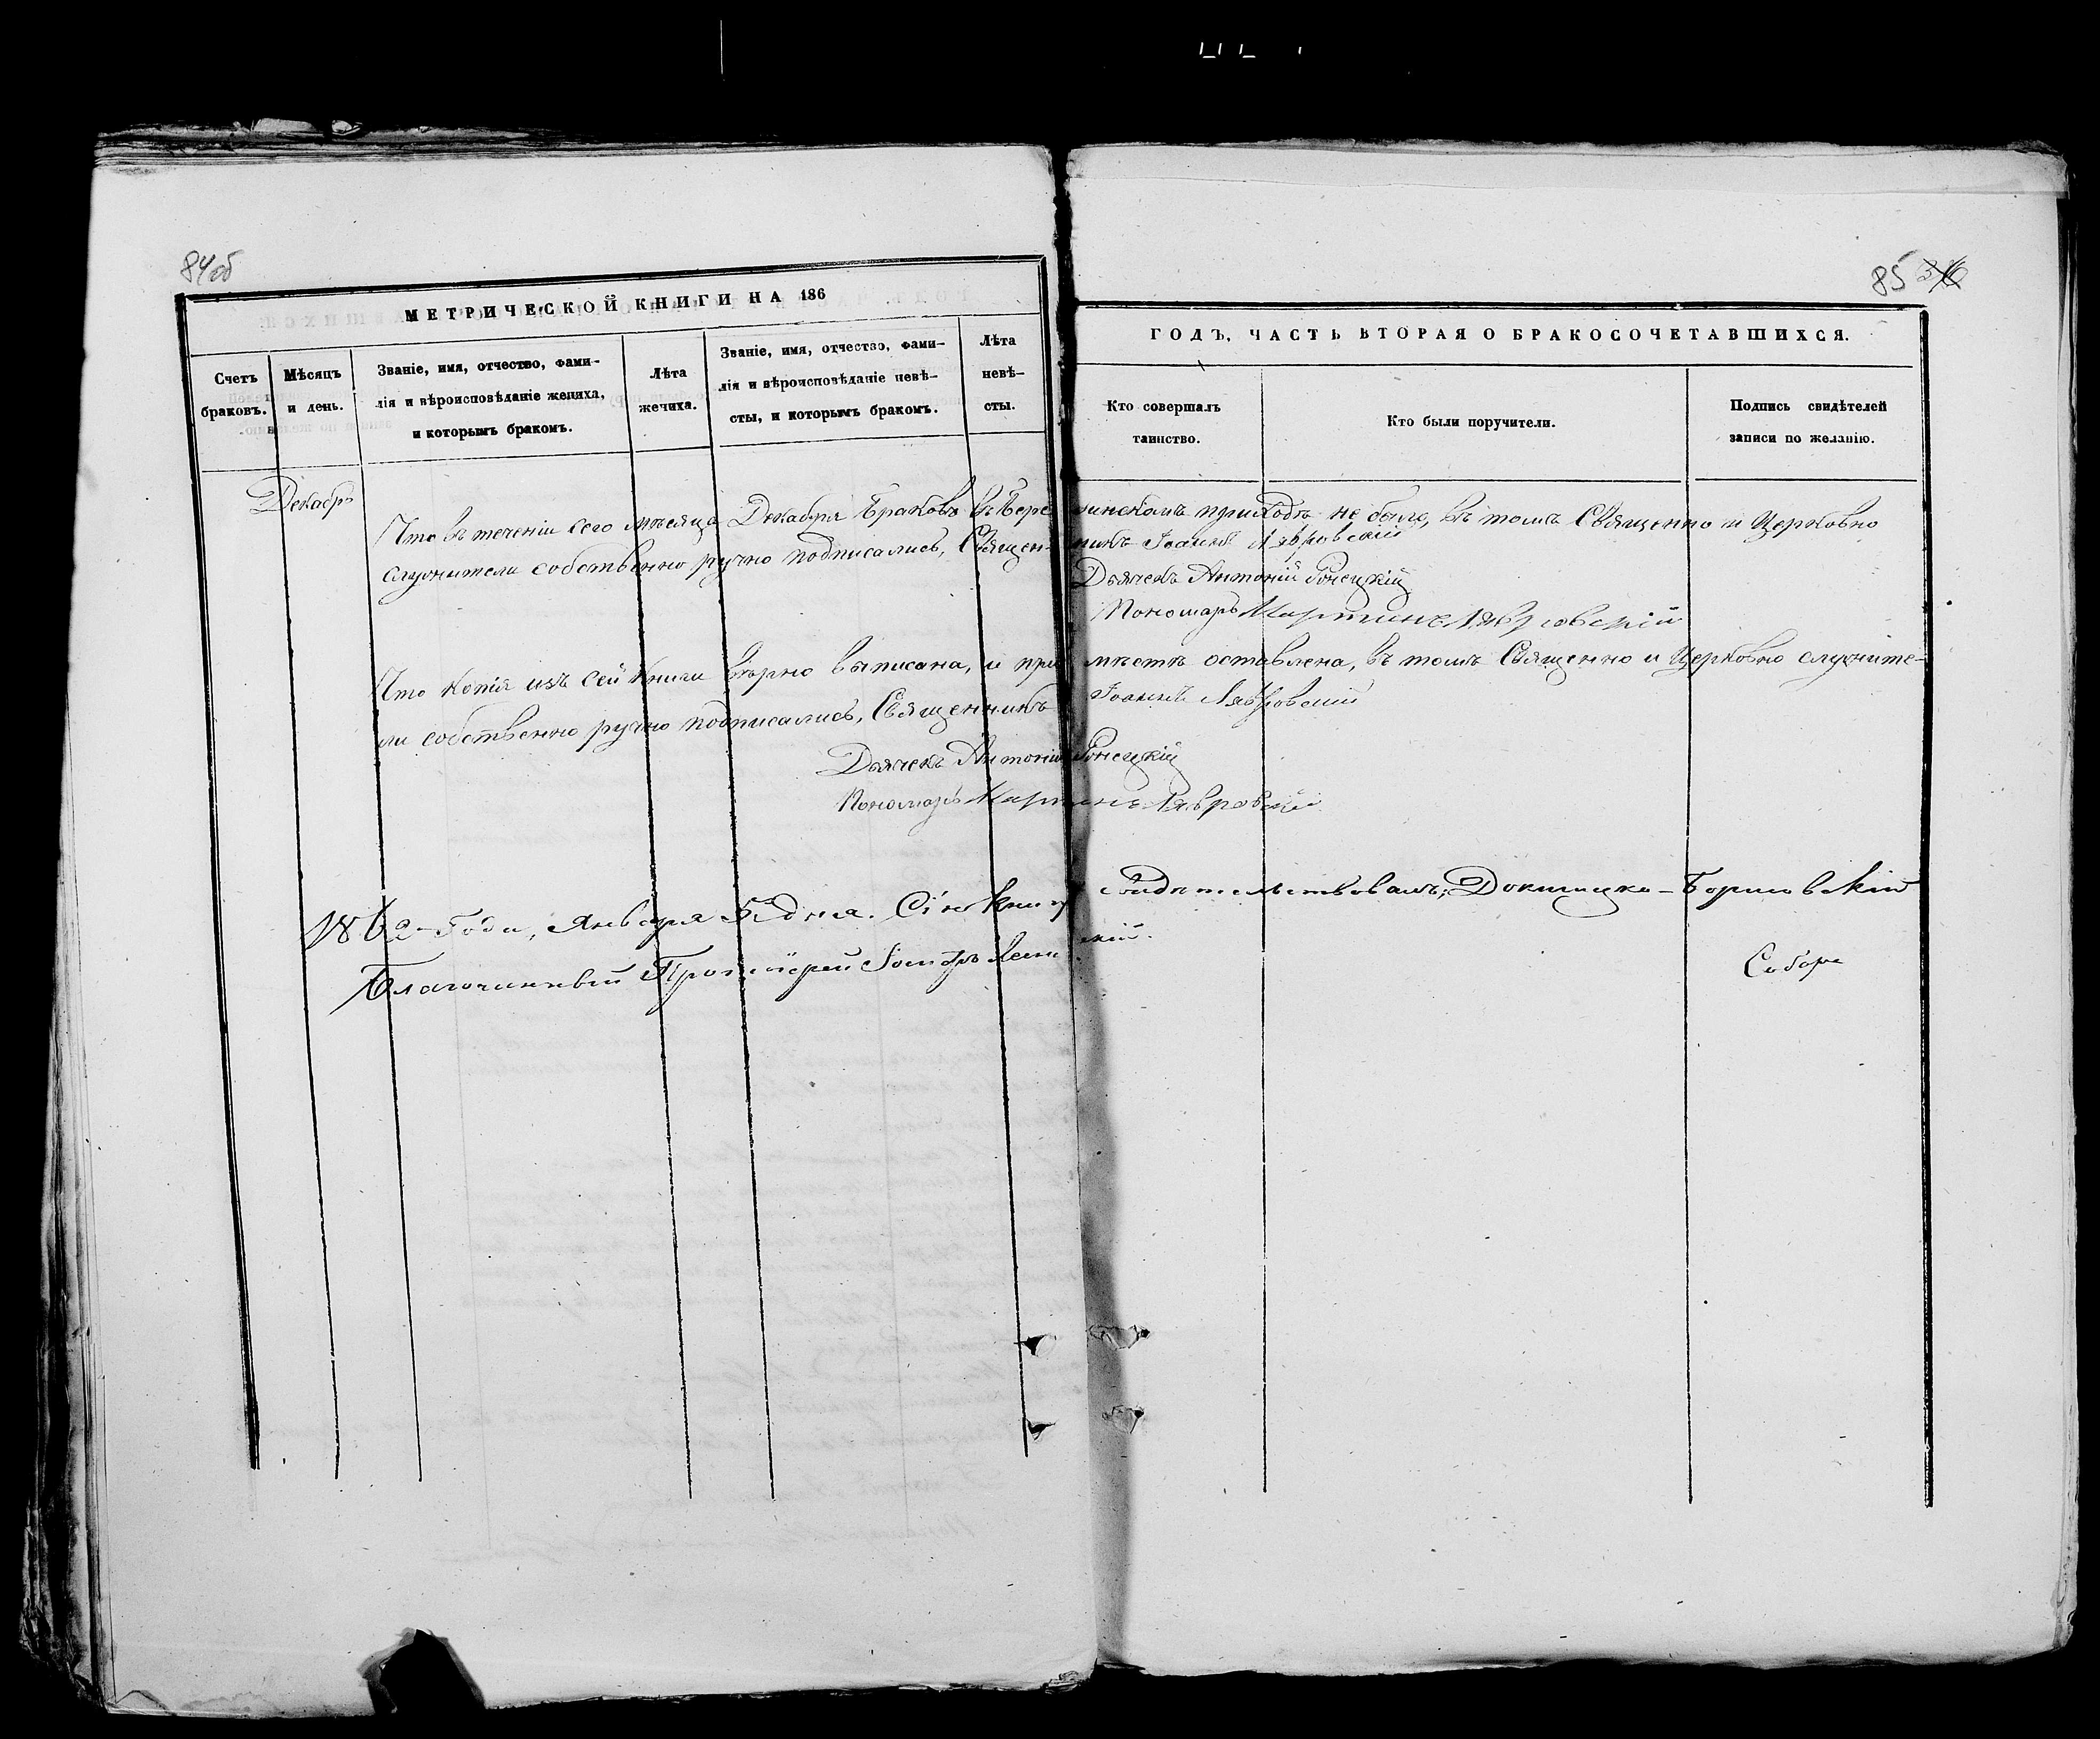 84об
85 316
МЕТРИЧЕСКОЙ КНИГИ НА 186
ГОДЪ, ЧАСТЬ ВТОРАЯ О БРАКОСОЧЕТАВШИХСЯ.
Счетъ браковъ.
Мѣсяцъ и день.
Званіе, имя, отчество, фами-
лія и вѣроисповѣданіе жениха,
и которымъ бракомъ.
Лѣта жениха.
Званіе, имя, отчество, фами-
лія и вѣроисповѣданіе невѣ-
сты, и которымъ бракомъ.
Лѣта невѣ-
сты.
Кто совершалъ
таинство.
Кто были поручители.
Подпись свидѣтелей
записи по желанію.
Декабрь
Что въ теченіи сего мѣсяца Декабря Браковъ въ приходѣ не было, въ томъ Священно и Церковно
служители собственно ручно подписались, Священникъ Іоаннъ Лавровскій
Дьячекъ Антоній Гонецкій
Пономарь Мартинъ Лавровскій
Что копія изъ сей книги вѣрно выписана, и при мѣстѣ оставлена, въ томъ Священно и Церковно служите-
ли собственно ручно подписались, Священникъ Іоаннъ Лавровскій
Дьячекъ Антоній Гонецкій
Пономарь Мартинъ Лавровскій
1862 Года, Января 5 дня. Сію книгу свидѣтельствовалъ, Докшицко-Борисовскій
Благочинный Протоіерей
Собора